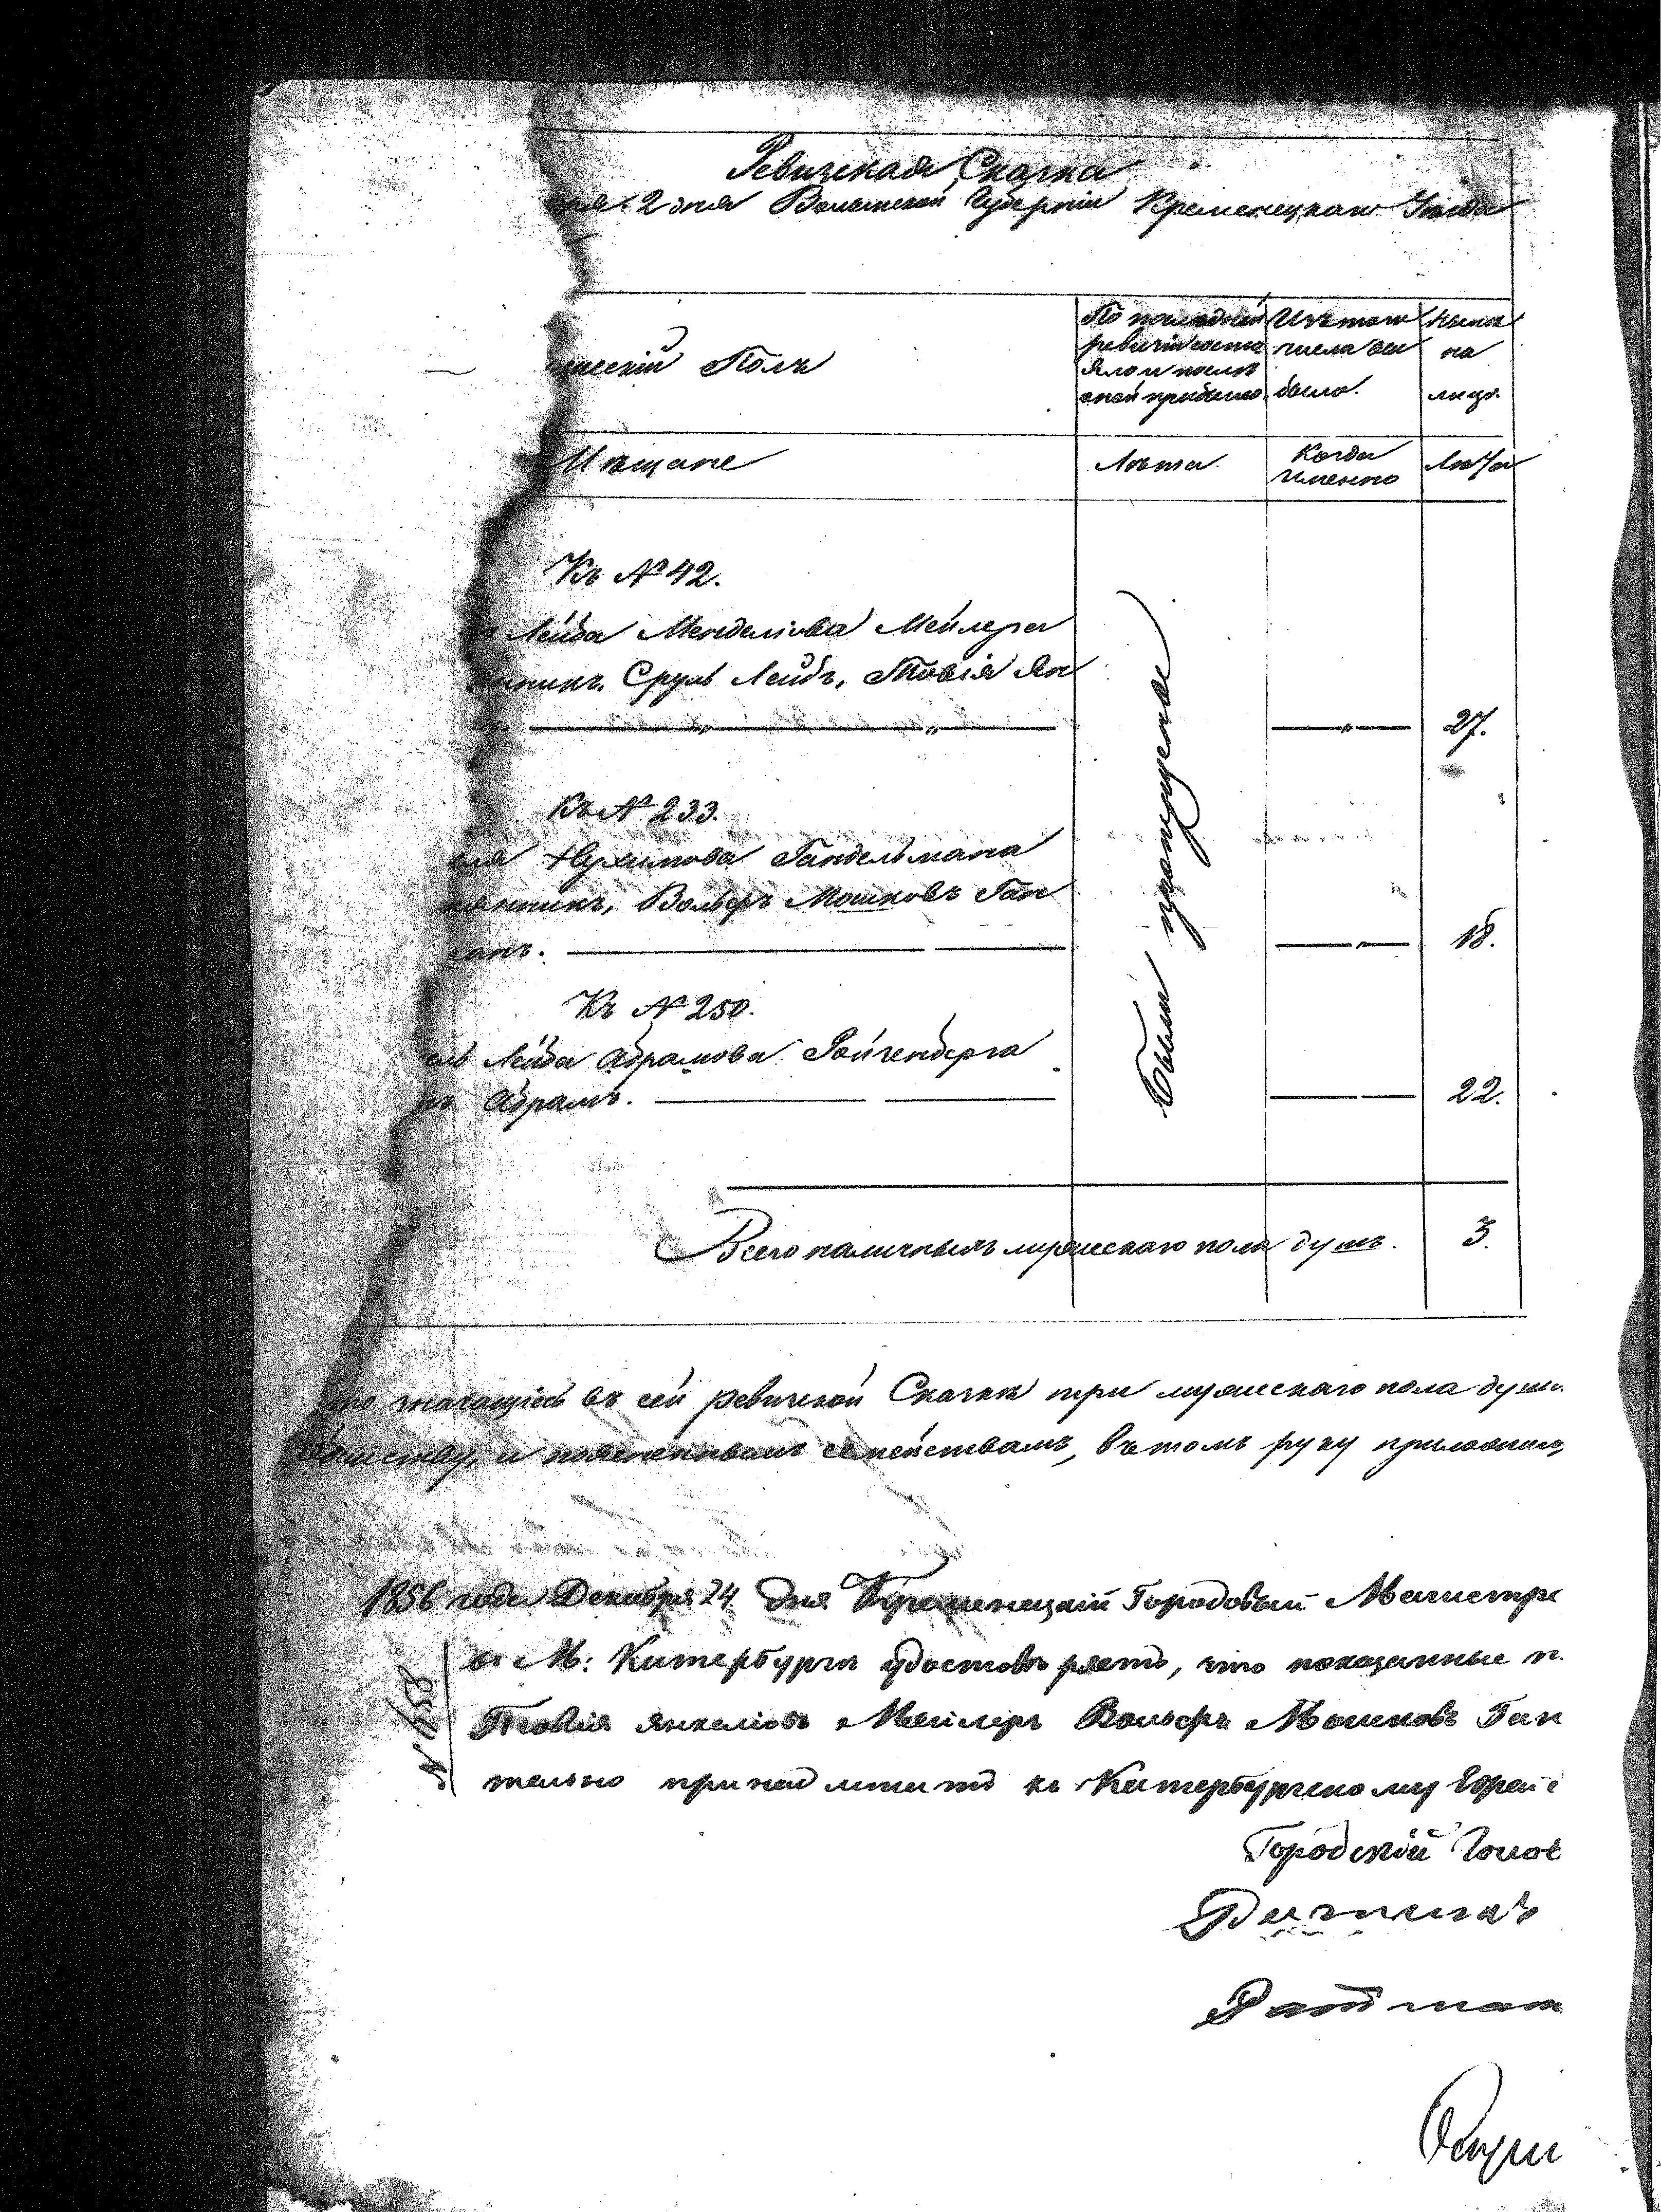 Ревизская Сказка
2 дня Волынской Губерніи Кременецкаго Уѣзда
Полъ
По последней ревизіи состояло и послѣ оной прибыло.
Изъ того числа выбыло.
Нынѣ на лицо.
Мѣщане
Лѣта.
Когда именно
Лѣта
Къ № 42.
Лейба Менделіова Мейлера
Сруль Лейбъ, Товія Ян
27.
Были пропущены
Къ № 233.
Гандельмана
Вольфъ Мошковъ Ган
18.
Къ № 250.
Лейба Абрамова Ройхенберга
Абрамъ.
22.
Всего наличныхъ мужескаго пола душъ.
3.
значащіесь въ сей ревизской Сказкѣ три мужескаго пола души
Обществу, и семействамъ, въ томъ руку приложили,
1856 года Декабря 24 дня Кременецкій Городовый Магистра
М: Китербурга удостовѣряетъ, что показанные п.
№ 1158
Товія Янкеліовъ Мейлеръ Вольфъ Мошковъ Ган
тельно принадлежитъ къ Катербургскому Еврей
Городскій Голов
Ратман